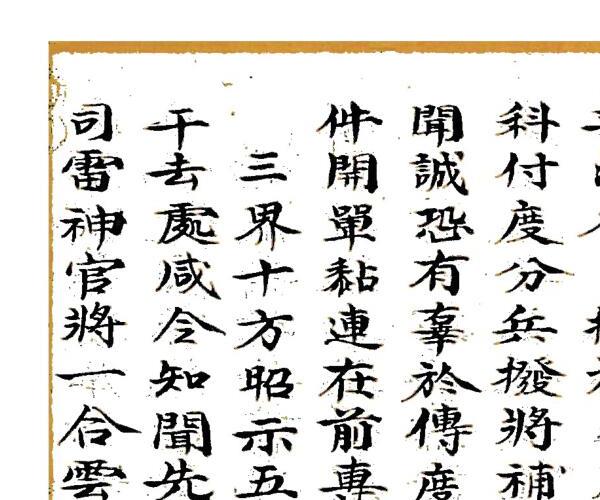 科付度分兵撥將補
聞誠恐有辜於傳度
件開單黏連在前專
三界十方昭示五
干去處咸令知聞先
司雷神官將一合雲